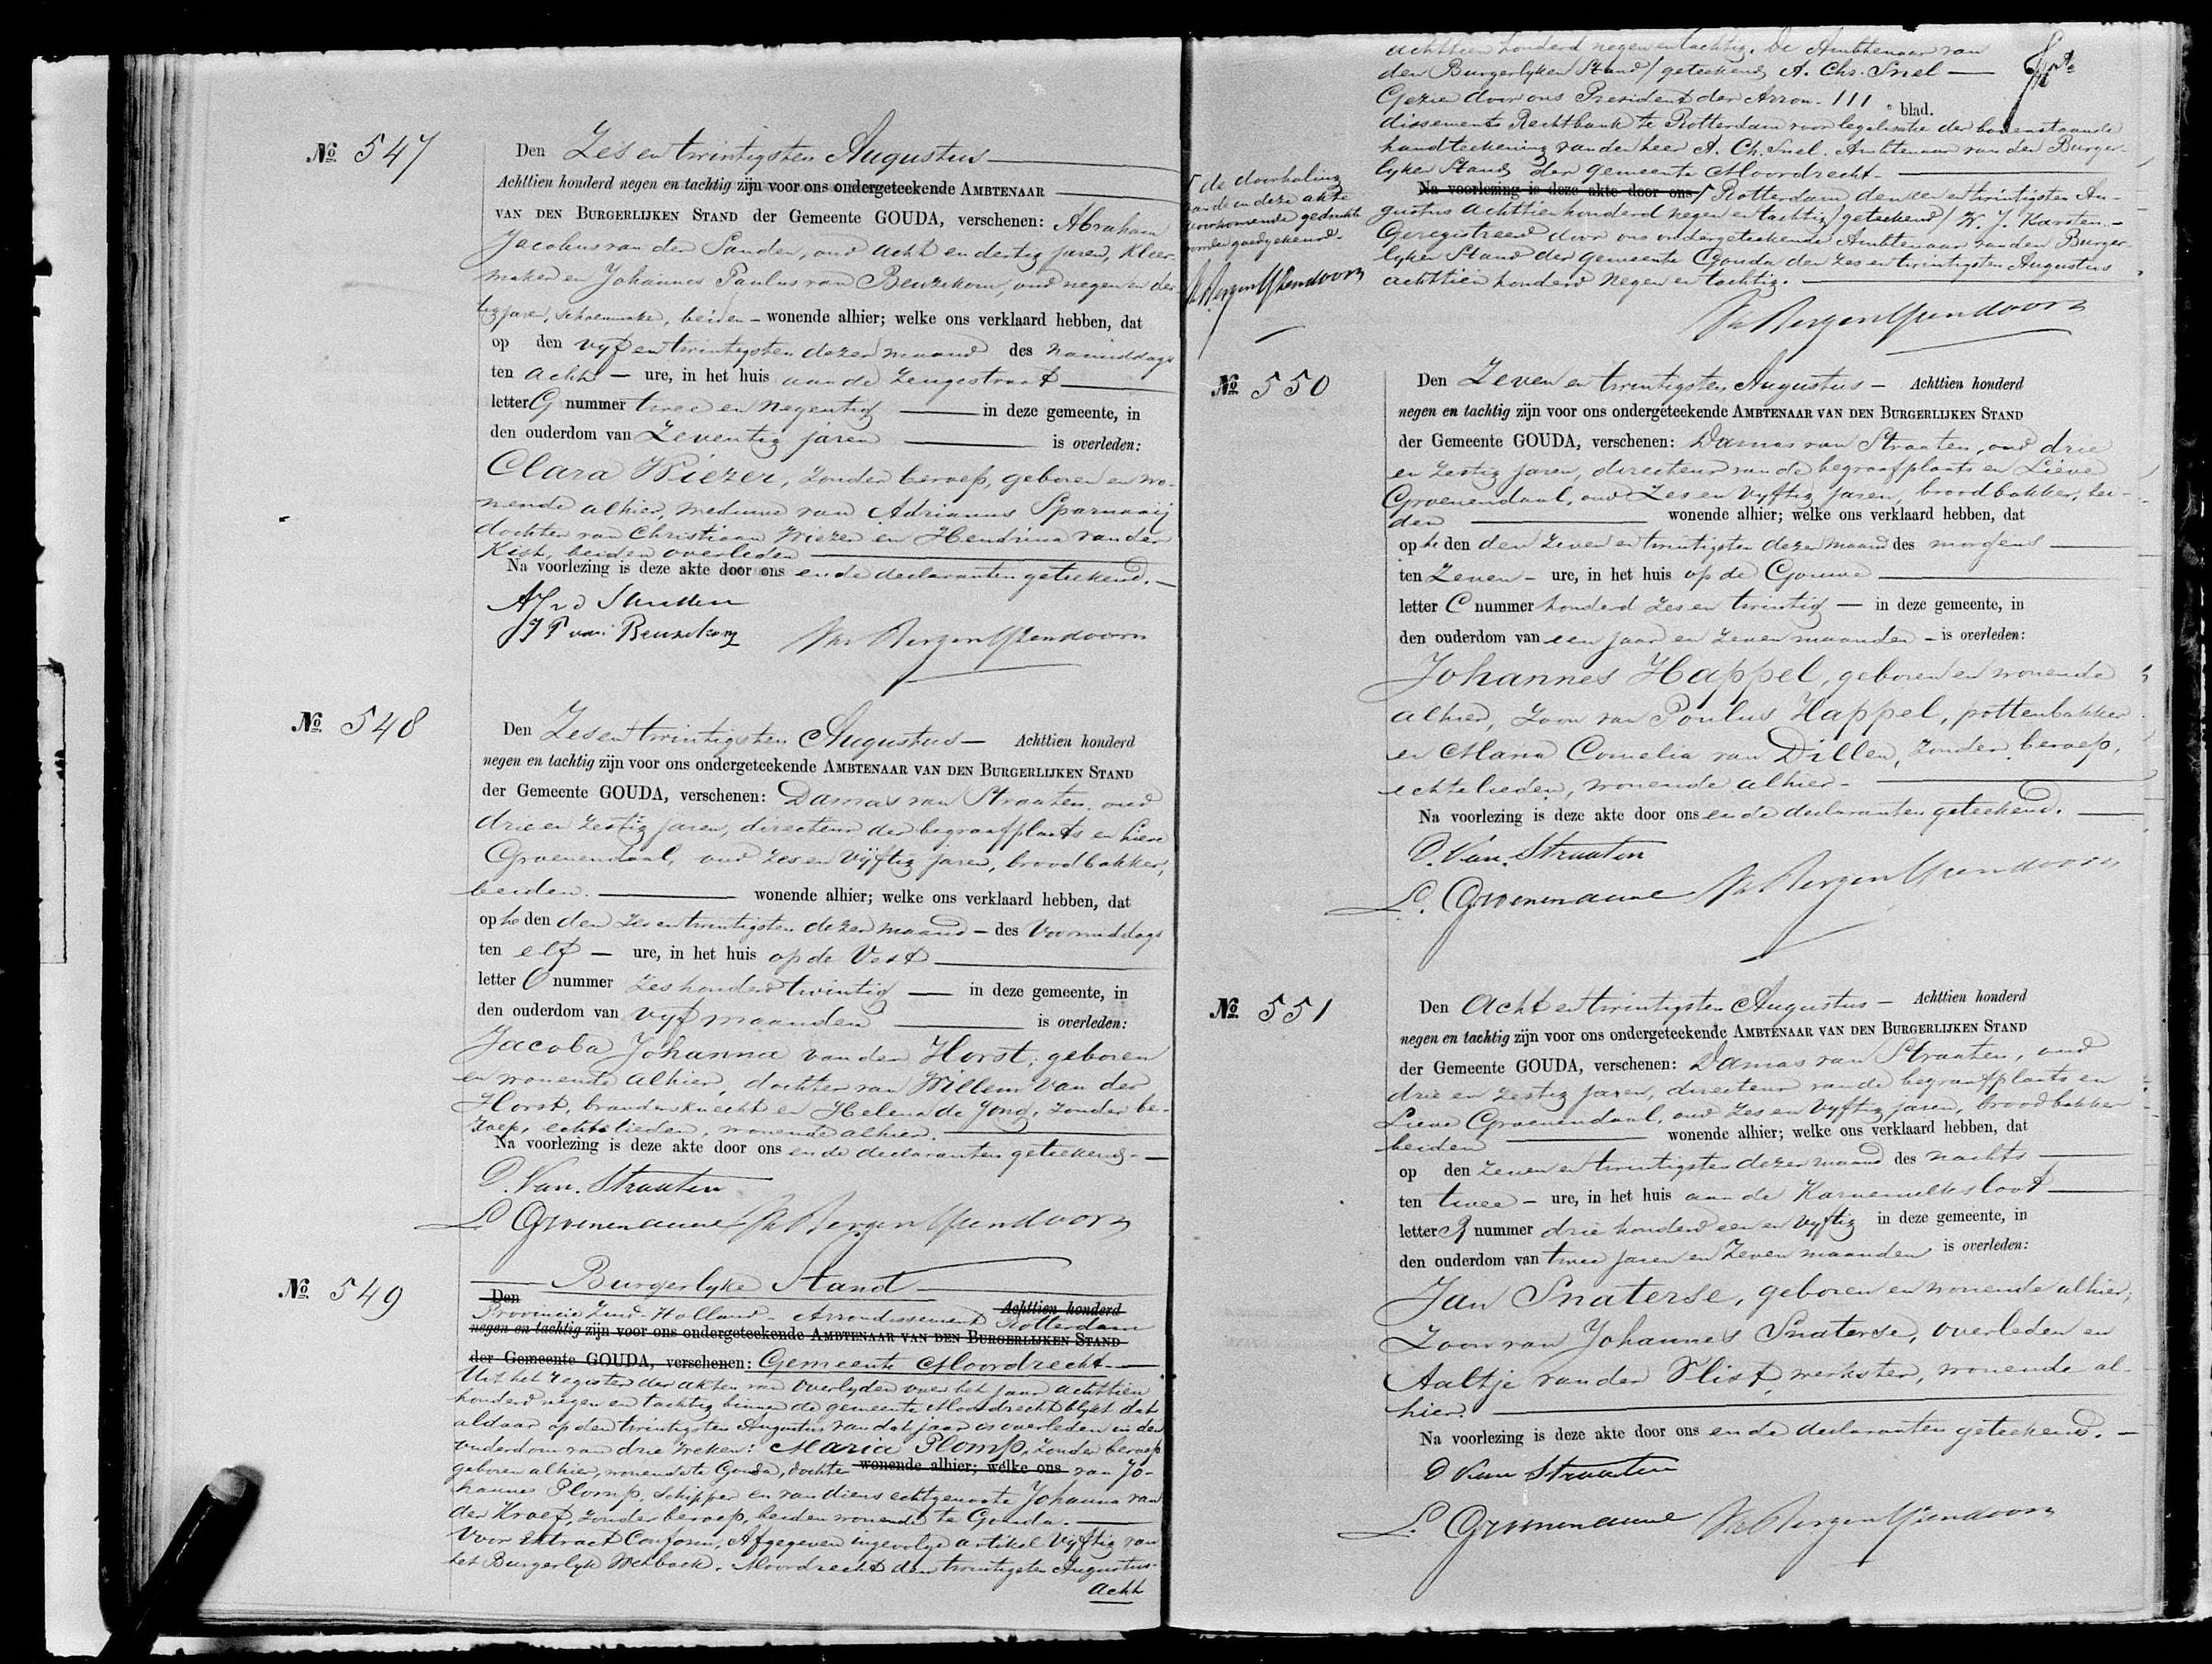 № 547
Den Zes en twintigsten Augustus
Achttien honderd negen en tachtig zijn voor ons ondergeteekende AMBTENAAR
VAN DEN BURGERLIJKEN STAND der Gemeente GOUDA, verschenen: Abraham
Jacobus van der Sanden, oud acht en dertig jaren, kleer-
maker en Johannes Paulus van Beuzekom, oud negen en der-
tig jaren, schoenmaker, beiden - wonende alhier; welke ons verklaard hebben, dat
op den vyf en twintigsten dezer maand des namiddags
ten acht - ure, in het huis aan de Zeugestraat
letter G nummer twee en negentig in deze gemeente, in
den ouderdom van Zeventig jaren is overleden:
Clara Wiezer, zonder beroep, geboren en wo-
nende alhier, weduwe van Adrianus Sparnaaij
dochter van Christiaan Wiezer en Hendrina van der
Kist, beiden overleden
Na voorlezing is deze akte door ons en de declaranten geteekend.
AJ vd Sanden
J P van Beuzekom
№ 548
Den Zes en twintigsten Augustus - Achttien honderd
negen en tachtig zijn voor ons ondergeteekende AMBTENAAR VAN DEN BURGERLIJKEN STAND
der Gemeente GOUDA, verschenen: Damas van Straaten, oud
drie en zestig jaren, directeur der begraafplaats en Lieve
Groenendaal, oud zes en vyftig jaren, broodbakker,
beiden. wonende alhier; welke ons verklaard hebben, dat
op heden den zes en twintigsten dezer maand - des voormiddags
ten elf - ure, in het huis op de Vest
letter O nummer zes honderd twintig in deze gemeente, in
den ouderdom van vyf maanden is overleden:
Jacoba Johanna van der Horst, geboren
en wonende alhier, dochter van Willem van der
Horst, brandersknecht en Helena de Jong, zonder be-
roep, echtelieden, wonende alhier.
Na voorlezing is deze akte door ons en de declaranten geteekend.
D. Van. Straaten
L Groenendaal
№ 549
Burgerlyke Stand
Den Achttien honderd
Provincie Zuid-Holland - Arrondissement Rotterdam
negen en tachtig zijn voor ons ondergeteekende AMBTENAAR VAN DEN BURGERLIJKEN STAND
der Gemeente GOUDA, verschenen: Gemeente Moordrecht.
Uit het register der akten van overlyden over het jaar achttien
honderd negen en tachtig binnen de gemeente Moordrecht blykt dat
aldaar op den twintigsten Augustus van dat jaar is overleden in den
ouderdom van drie weken: Maria Plomp, zonder beroep
geboren alhier, wonende te Gouda, dochter wonende alhier; welke ons van Jo-
hannes Plomp, schipper en van diens echtgenoote Johanna van
der Kroef, zonder beroep, beiden wonende te Gouda.
Voor Extract Conform, Afgegeven ingevolge artikel vyftig van
het Burgerlyk Wetboek. Moordrecht den twintigsten Augustus
acht
achttien honderd negen en tachtig. De Ambtenaar van
den Burgerlyken Stand / geteekend A. Chs. Snel
Gezien door ons President der Arron- 111e blad.
dissements Rechtbank te Rotterdam voor legalisatie der bovenstaande
handteekening van den heer A. Ch. Snel. Ambtenaar van den Burger-
lyken Stand der gemeente Moordrecht.
Na voorlezing is deze akte door ons Rotterdam den een en twintigsten Au-
gustus achttien honderd negen en tachtig / geteekend / W. J. Karsten.
Geregistreerd door ons ondergeteekende Ambtenaar van den Burger-
lyken Stand der gemeente Gouda den zes en twintigsten Augustus
achttien honderd negen en tachtig.
de doorhaling
van de in deze akte
voorkomende gedrukte
woorden goedgekeurd.
№ 550
Den Zeven en twintigsten Augustus - Achttien honderd
negen en tachtig zijn voor ons ondergeteekende AMBTENAAR VAN DEN BURGERLIJKEN STAND
der Gemeente GOUDA, verschenen: Damas van Straaten, oud drie
en zestig jaren, directeur van de begraafplaats en Lieve
Groenendaal, oud Zes en vyftig jaren, broodbakker, bei-
den wonende alhier; welke ons verklaard hebben, dat
op heden den zeven en twintigsten dezer maand des morgens
ten zeven - ure, in het huis op de Gouwe
letter C nummer honderd zes en twintig - in deze gemeente, in
den ouderdom van een jaar en zeven maanden - is overleden:
Johannes Happel, geboren en wonende
alhier, zoon van Poulus Happel, pottenbakker
en Maria Cornelia van Dillen, zonder beroep,
echtelieden, wonende alhier.
Na voorlezing is deze akte door ons en de declaranten geteekend.
D. Van. Straaten
L. Groenendaal
№ 551
Den Acht en twintigsten Augustus - Achttien honderd
negen en tachtig zijn voor ons ondergeteekende AMBTENAAR VAN DEN BURGERLIJKEN STAND
der Gemeente GOUDA, verschenen: Damas van Straaten, oud
drie en zestig jaren, directeur van de begraafplaats en
Lieve Groenendaal, oud zes en vyftig jaren, broodbakker
beiden wonende alhier; welke ons verklaard hebben, dat
op den zeven en twintigsten dezer maand des nachts
ten twee - ure, in het huis aan de Karnemelksloot
letter R nummer drie honderd een en vyftig in deze gemeente, in
den ouderdom van twee jaren en zeven maanden is overleden:
Jan Snaterse, geboren en wonende alhier,
zoon van Johannes Snaterse, overleden en
Aaltje van der Vlist, werkster, wonende al-
hier.
Na voorlezing is deze akte door ons en de declaranten geteekend.
D Van Straaten
L. Groenendaal